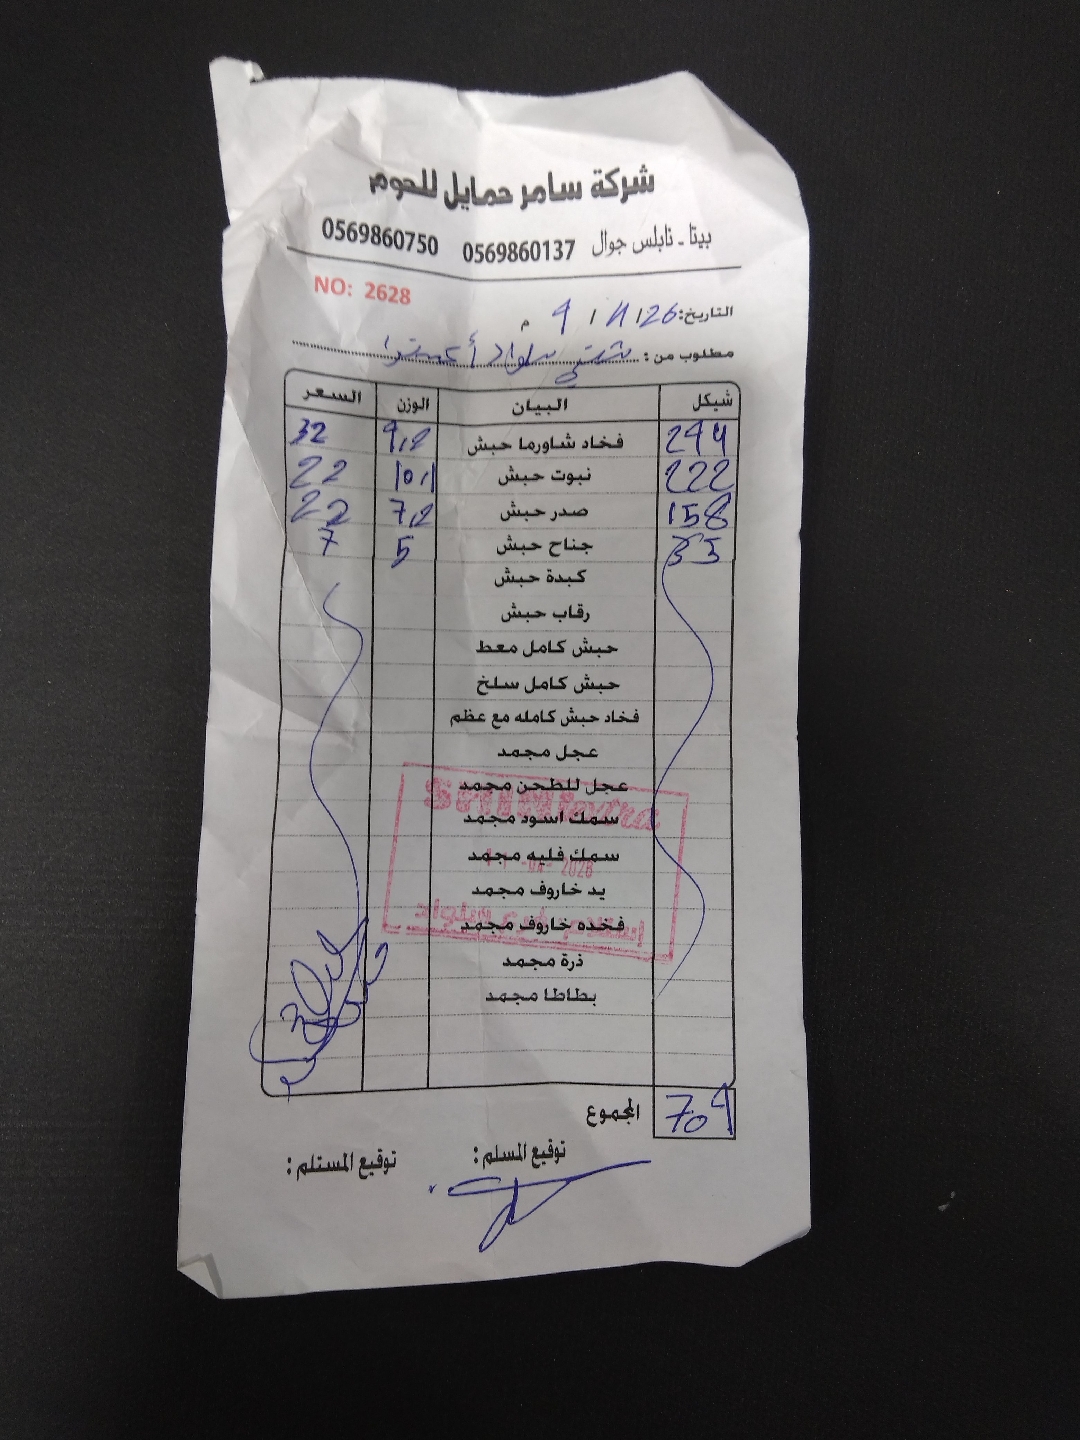 شركة سامر حمايل للحوم
بيتا - نابلس جوال 0569860137 0569860750
NO: 2628
التاريخ: 9 / 4 / 26 م
مطلوب من: سلواد
شيكل البيان الوزن السعر
294 فخاد شاورما حبش 9,2 32
222 نبوت حبش 10,1 22
158 صدر حبش 7,2 22
35 جناح حبش 5 7
كبدة حبش
رقاب حبش
حبش كامل معط
حبش كامل سلخ
فخاد حبش كامله مع عظم
عجل مجمد
عجل للطحن مجمد
سمك اسود مجمد
سمك فليه مجمد
يد خاروف مجمد
فخده خاروف مجمد
ذرة مجمد
بطاطا مجمد
المجموع 709
توقيع المسلم :
توقيع المستلم :